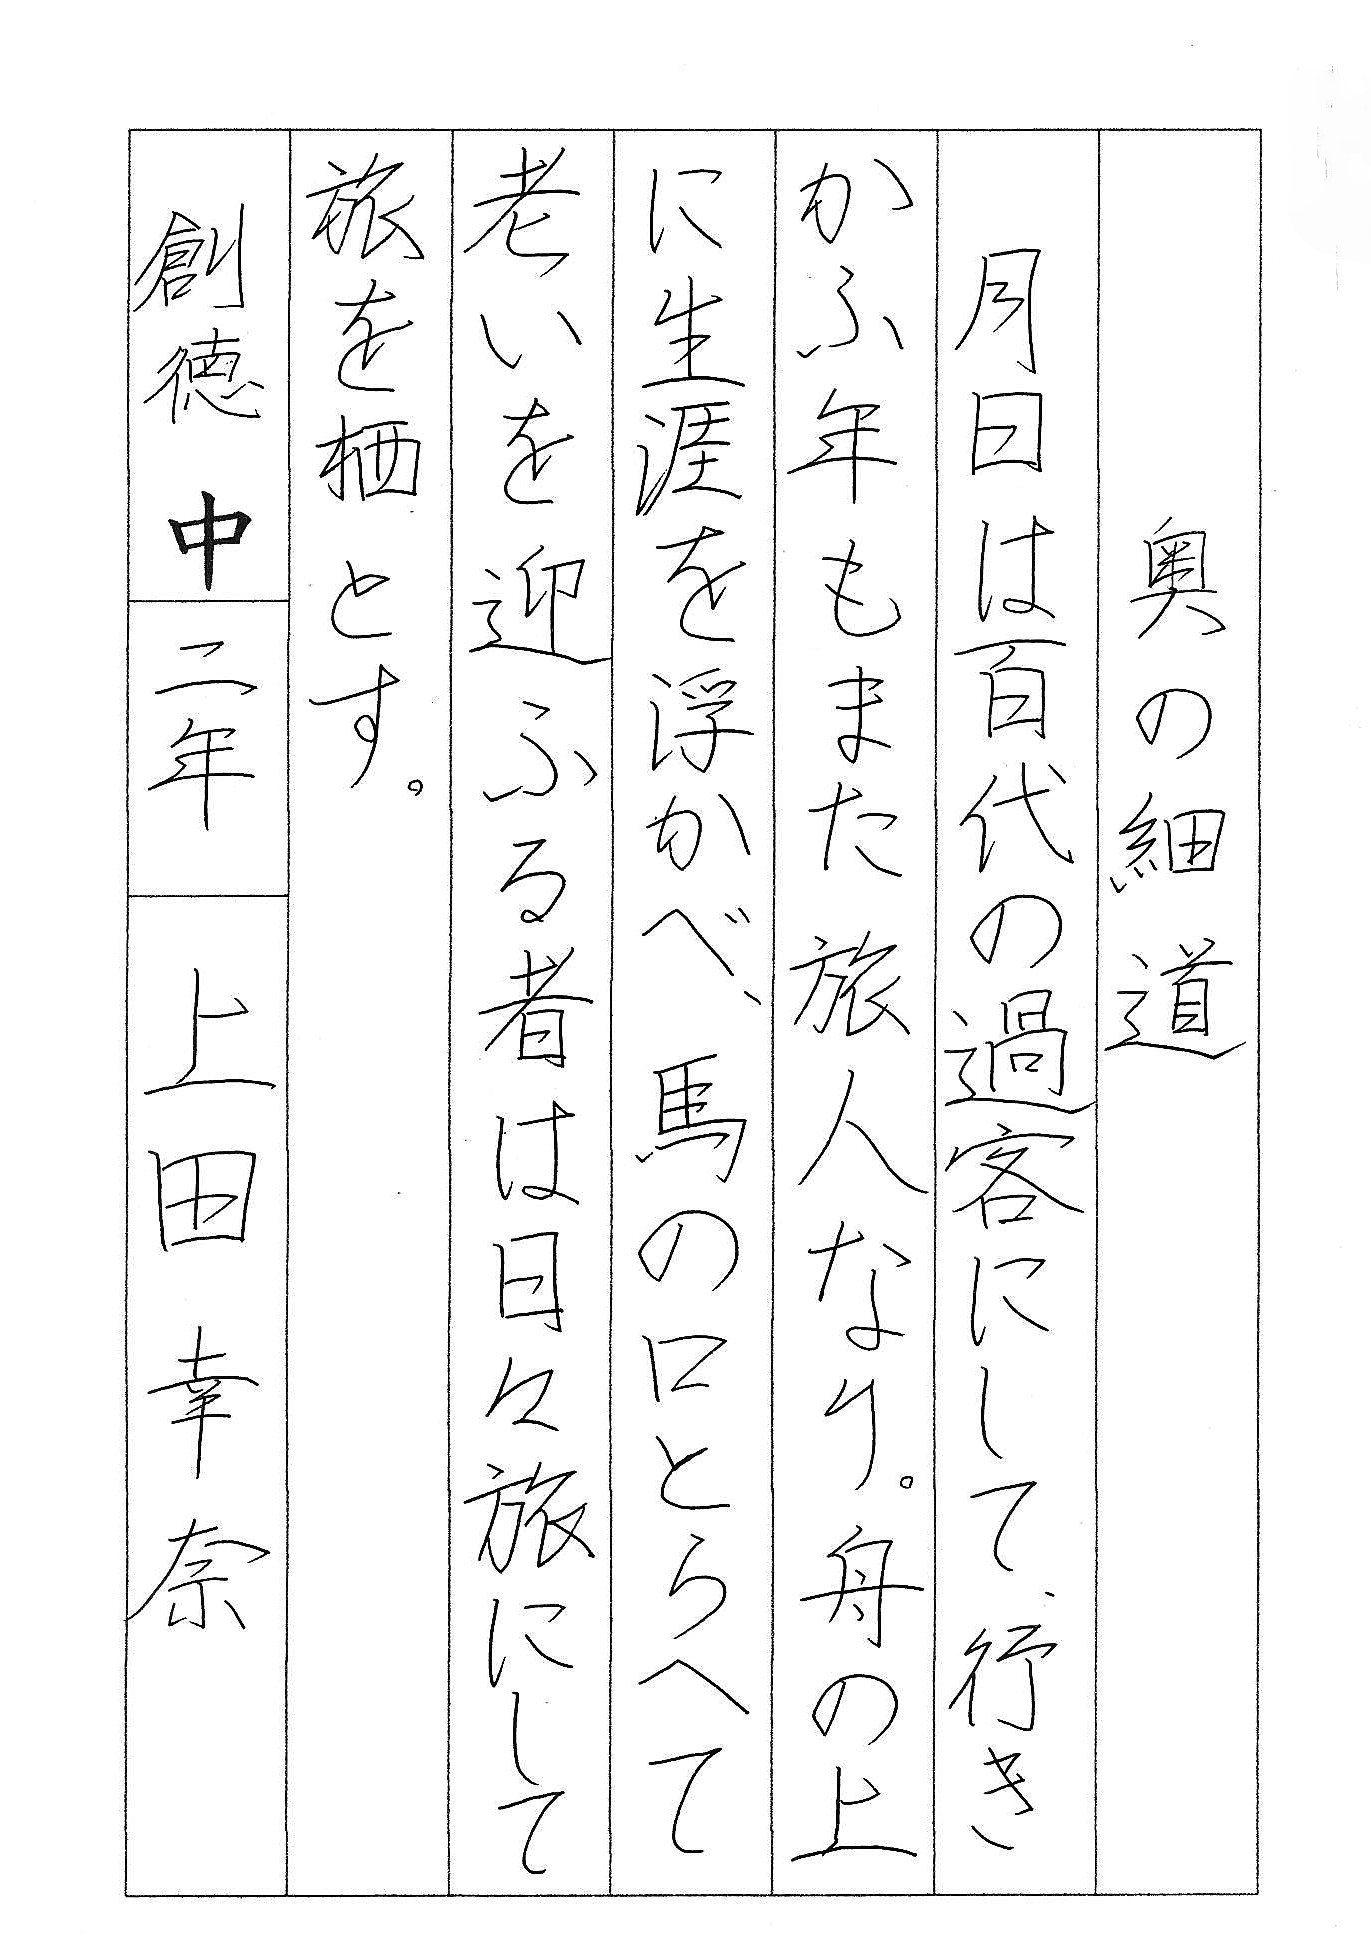 奥の細道
月日は百代の過客にして、行き
かふ年もまた旅人なり。舟の上
に生涯を浮かべ、馬の口とらへて
老いを迎ふる者は日々旅にして
旅を栖とす。
創徳中 二年 上田幸奈